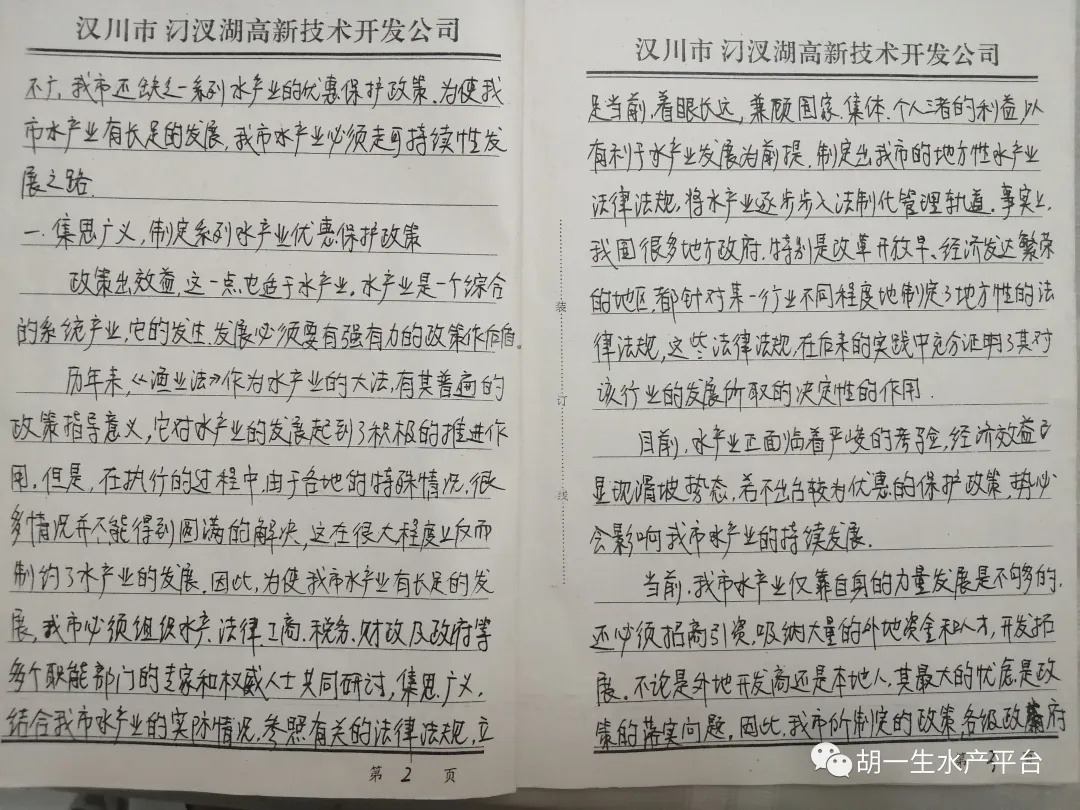 汉川市 汈汊湖高新技术开发公司
不广,我市还缺乏一系列水产业的优惠保护政策.为使我
市水产业有长足的发展,我市水产业必须走可持续性发
展之路.
一.集思广义,制定系列水产业优惠保护政策
政策出效益,这一点也适于水产业。水产业是一个综合
的系统产业,它的发生、发展必须要有强有力的政策作后盾。
历年来,《渔业法》作为水产业的大法,有其普遍的
政策指导意义,它对水产业的发展起到了积极的推进作
用.但是,在执行的过程中,由于各地的特殊情况,很
多情况并不能得到圆满的解决,这在很大程度上反而
制约了水产业的发展.因此,为使我市水产业有长足的发
展,我市必须组织水产、法律、工商、税务、财政及政府等
多个职能部门的专家和权威人士共同研讨,集思广义,
结合我市水产业的实际情况,参照有关的法律法规,立
第 2 页
汉川市 汈汊湖高新技术开发公司
足当前,着眼长远,兼顾国家.集体.个人三者的利益,以
有利于水产业发展为前提.制定出我市的地方性水产业
法律法规,将水产业逐步步入法制化管理轨道.事实上,
我国很多地方政府.特别是改革开放早、经济发达繁荣
的地区,都针对某一行业不同程度地制定了地方性的法
律法规,这些法律法规,在后来的实践中充分证明了其对
该行业的发展所取的决定性的作用.
目前,水产业正面临着严峻的考验,经济效益已
显现滑坡势态,若不出台较为优惠的保护政策,势必
会影响我市水产业的持续发展.
当前,我市水产业仅靠自身的力量发展是不够的,
还必须招商引资,吸纳大量的外地资金和人才,开发拓
展.不论是外地开发商还是本地人,其最大的忧虑是政
策的落实问题.因此,我市所制定的政策,各级政府
第 3
装
订
线
胡一生水产平台